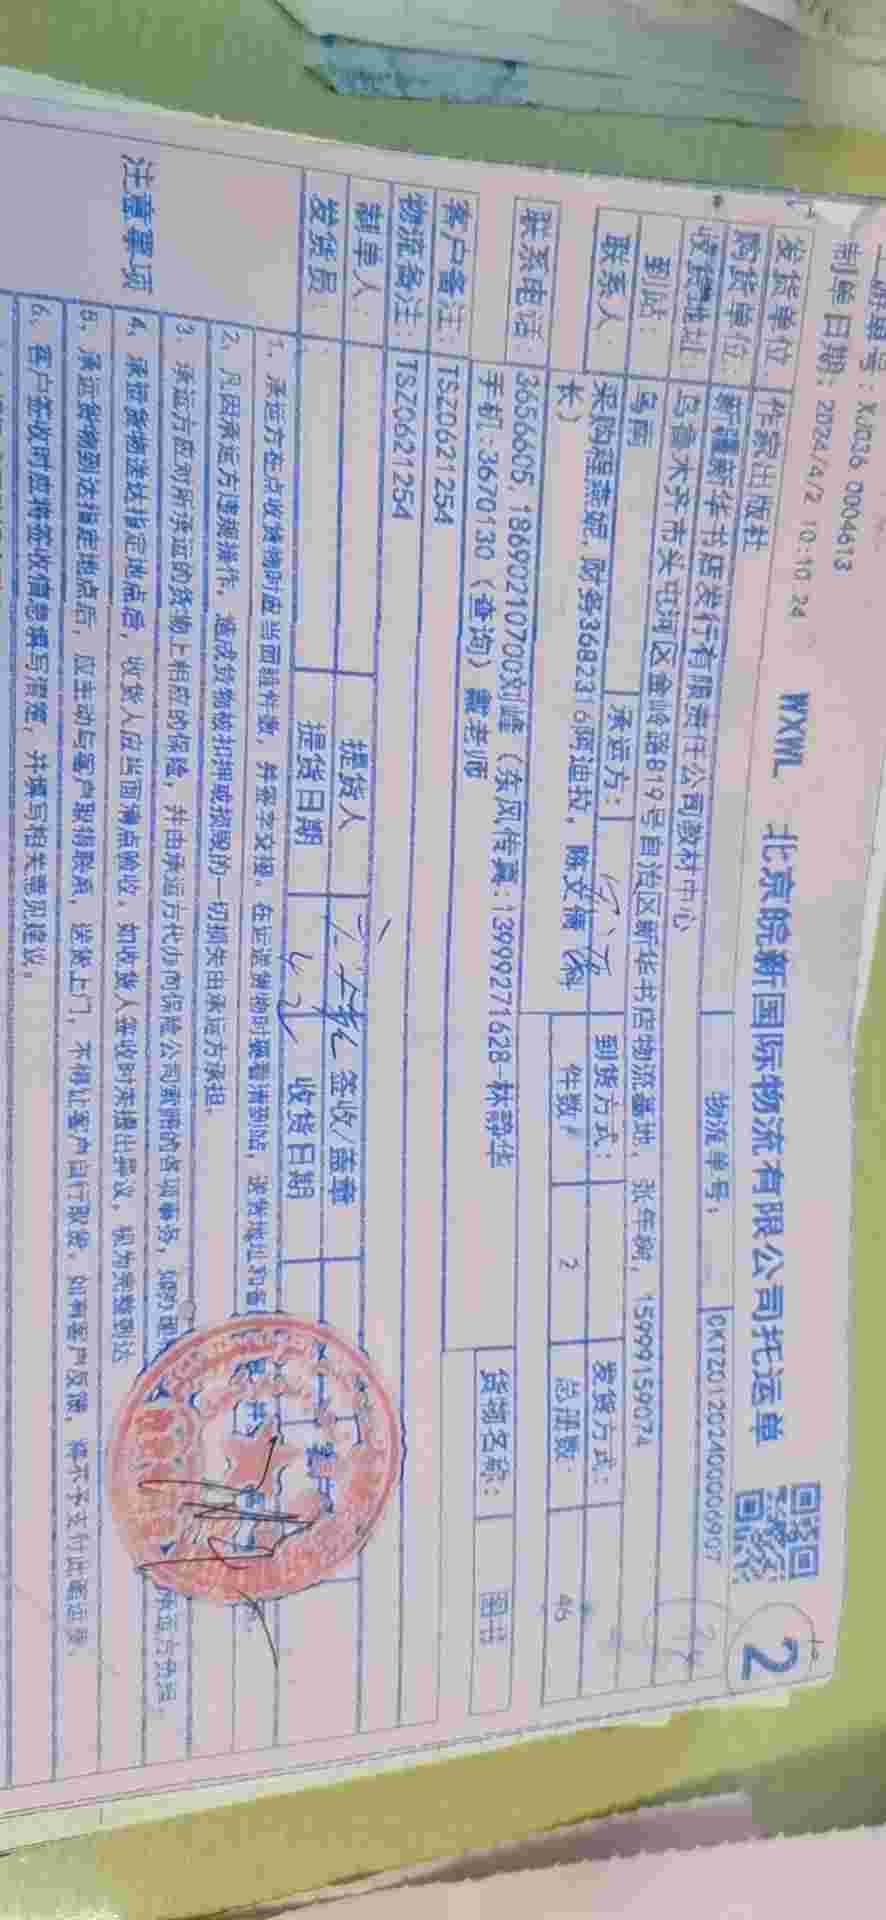 XJ036 0004613
制单日期: 2024/4/2 10:10:24
WXWL 北京皖新国际物流有限公司托运单
2
发货单位 作家出版社
物流单号: CKTZ01202400006907
购货单位: 新疆新华书店发行有限责任公司教材中心
收货地址: 乌鲁木齐市头屯河区金岭路819号自治区新华书店物流基地,张年树,15999159074
到站: 乌南
承运方:
到货方式:
发货方式:
联系人 采购程燕妮,财务3682316阿迪拉,陈文倩(科长)
件数
2
总册数:
46
联系电话: 3656605,18690210700刘峰(东风传真:13999271628-林静华
手机:3670130(查询)戴老师
货物名称:
图书
客户备注: TSZ0621254
物流备注: TSZ0621254
制单人:
提货人
签收/盖章
发货员:
提货日期
4.2
收货日期
注意事项
1、承运方在点收货物时应当面验件数,并签字交接。在运送货物时要看清到站,送货地址和备
2、凡因承运方违规操作,造成货物被扣押或损毁的一切损失由承运方承担。
3、承运方应对所承运的货物上相应的保险,并由承运方代办向保险公司索赔的各项事务,
承运方负担。
4、承担货物送达指定地点后,收货人应当面清点验收。如收货人签收时未提出异议,视为完整到达
5、承运货物到达指定地点后,应主动与客户取得联系,送货上门,不得让客户自行取货。如有客户反馈,将不予支付此笔运费。
6、客户签收时应将签收信息填写清楚,并填写相关意见建议。